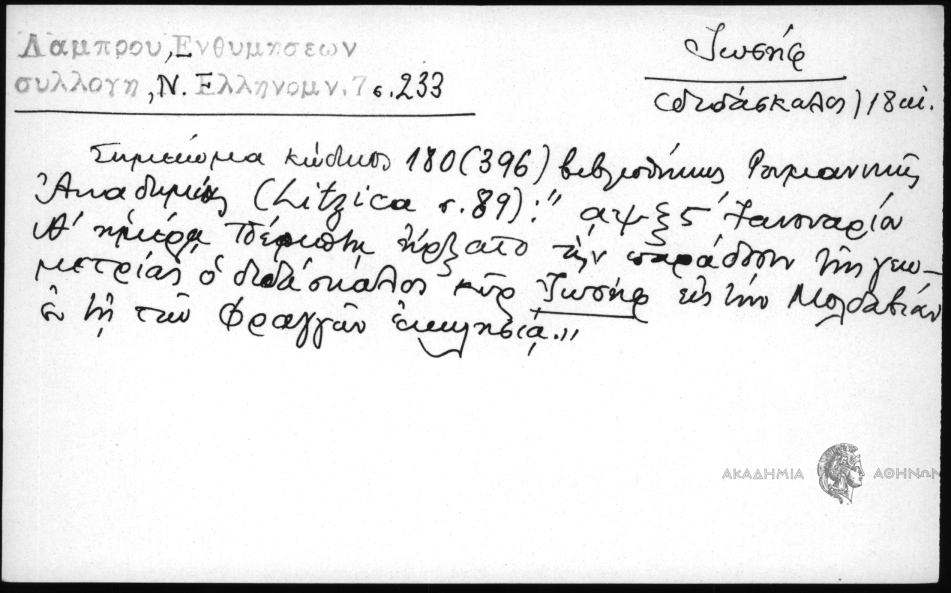 Λαμπρου, Ενθυμησεων
συλλογη, Ν. Ελληνομν. 7 σ. 233
Ἰωσήφ
(διδάσκαλος) 18 αἰ.
Σημείωμα κώδικος 180 (396) βιβλιοθήκης Ρουμανικῆς
Ἀκαδημίας (Litzica σ. 89): " αψξς΄ Ἰανουαρίου
ἡμέρᾳ Πέμπτῃ ἤρξατο τὴν παράδοσιν τῆς γεω-
μετρίας ὁ διδάσκαλος κὺρ Ἰωσὴφ εἰς τὴν Μολδαβίαν
ἐν τῇ τῶν Φραγγῶν ἐκκλησίᾳ."
ΑΚΑΔΗΜΙΑ ΑΘΗΝΩΝ